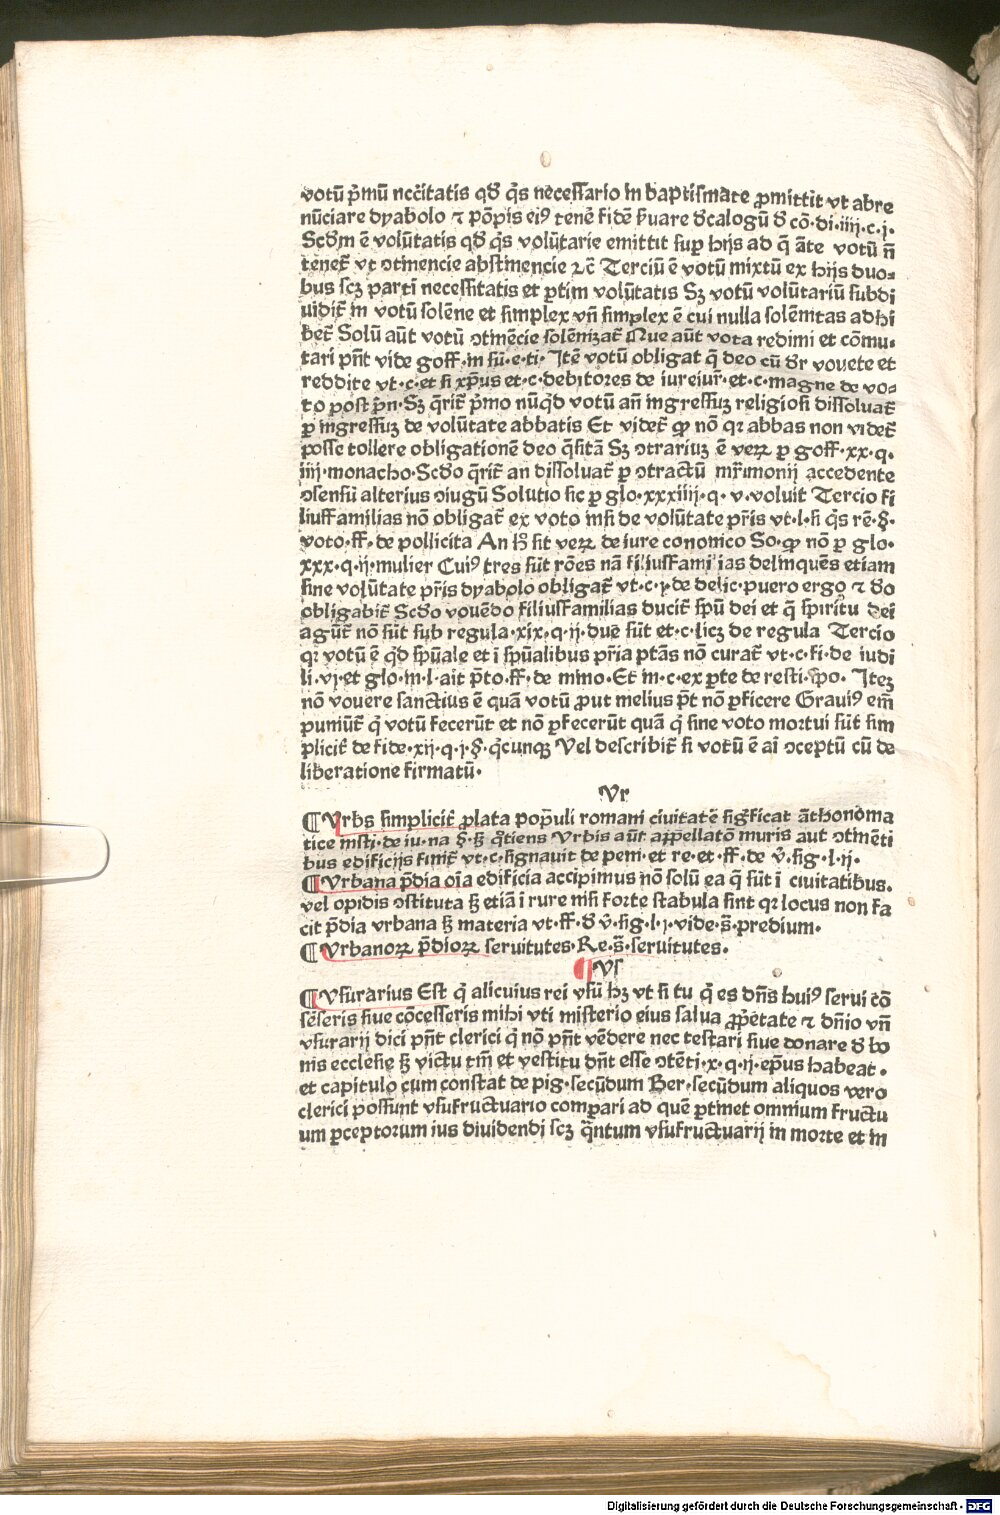 votū p̄mū nccitatis qđ q̄s necessario in baptismate ꝓmittit vt abre
nūciare dyabolo ⁊ pōpis eiꝰ tenē fidē ẜuare đcalogū đ cō·di·iiij·c·j·
Scđm ē volūtatis qđ q̄s volūtarie emittit suꝑ hijs ad q̄ āte votū n̄
tenet̄ vt ↄtinencie abstinencie ⁊c̄ Terciū ē votū mixtū ex hijs duo-
bus scꝫ parti necessitatis et ꝑtim volūtatis Sꝫ votū volūtariū subdi
uidit̄ in votū solēne et simplex vn̄ simplex ē cui nulla solēnitas adhi
bet̄ Solū aūt votū ↄtinēcie solēnizat̄ Que aūt vota redimi et cōmu-
tari pn̄t vide goff·in sū·e·ti· Itē votū obligat q̄ deo cū dr̄ vouete et
reddite vt·c·et si xp̄us et·c·debitores de iureiur̄·et·c·magne de vo-
to post p̄n·Sꝫ q̄rit̄ p̄mo nūqđ votū an̄ ingressuꝫ religiosi dissoluat̄
ꝑ ingressuꝫ de volūtate abbatis Et videt̄ ꝙ nō qꝛ abbas non videt̄
posse tollere obligationē deo q̄sitā Sꝫ ↄtrariuꝫ ē veꝝ ꝑ goff·xx·q·
iiij·monacho·Scđo q̄rit̄ an dissoluat̄ ꝑ ↄtractū mr̄imonij accedente
ↄsensū alterius ↄiugū Solutio sic ꝑ glo·xxxiiij·q·v·voluit Tercio fi
liusfamilias nō obligat̄ ex voto nisi de volūtate pr̄is vt·l·si q̄s rē·§·
voto·ff·de pollicita An ħ sit veꝝ de iure cononico So·ꝙ nō ꝑ glo·
xxx·q·ij·mulier Cuiꝰ tres sūt rōes nā filiusfamilias delinquēs etiam
sine volūtate pr̄is dyabolo obligat̄ vt·c·j·de delic·puero ergo ⁊ đo
obligabit̄ Scđo vouēdo filiusfamilias ducit̄ sp̄u dei et q̄ spiritu dei
agūt̄ nō sūt sub regula·xix·q·ij·due sūt et·c·licꝫ de regula Tercio
qꝛ votū ē qđ sp̄uale et ī sp̄ualibus pr̄ia ptās nō curat̄ vt·c·fi·de iudi
li·vj·et glo·in·l·ait p̄to·ff·de mino·Et in·c·ex ꝑte de resti·spo· Iteꝫ
nō vouere sanctius ē quā votū ꝓut melius p̄t nō ꝑficere Grauiꝰ em̄
puniūt̄ q̄ votū fecerūt et nō ꝑfecerūt quā q̄ sine voto mortui sūt sim
plicit̄ de fide·xij·q·j·§·q̄cunqꝫ Vel describit̄ si votū ē ai ↄceptū cū de
liberatione firmatū·
Vr
¶ Vrbs simplicit̄ ꝓlata populi romani ciuitatē sigͥficat āthonoma
tice insti·de iu·na §·ß q̄tiens Vrbis aūt appellatō muris aut ↄtinēti
bus edificijs finit̄ vt·c·signauit de peni·et re·et·ff·de v̄·sig·l·ij·
¶ Vrbana p̄dia oīa edificia accipimus nō solū ea q̄ sūt ī ciuitatibus·
vel opidis ↄstituta ß etiā ī rure nisi forte stabula sint qꝛ locus non fa
cit p̄dia vrbana ß materia vt·ff·đ v̄·sig·l·j·vide·s̄·predium·
¶ Vrbanoꝝ p̄dioꝝ seruitutes·Re·s̄·seruitutes·
¶ Vs
¶ Vsurarius Est q̄ alicuius rei vsū hꝫ vt si tu q̄ es dn̄s huiꝰ serui cō
sēseris siue cōcesseris mihi vti misterio eius salua ꝓp̄etate ⁊ dn̄io vn̄
vsurarij dici pn̄t clerici q̄ nō pn̄t vēdere nec testari siue donare đ bo
nis ecclesie ß victu tm̄ et vestitu dn̄t esse ↄtēti·x·q·ij·ep̄us habeat·
et capitulo cum constat de pig·secūdum Ber·secūdum aliquos vero
clerici possunt vsufructuario compari ad quē ꝑtinet omnium fructu
um ꝑceptorum ius diuidendi scꝫ q̄ntum vsufructuarij in morte et in
Digitalisierung gefördert durch die Deutsche Forschungsgemeinschaft - DFG